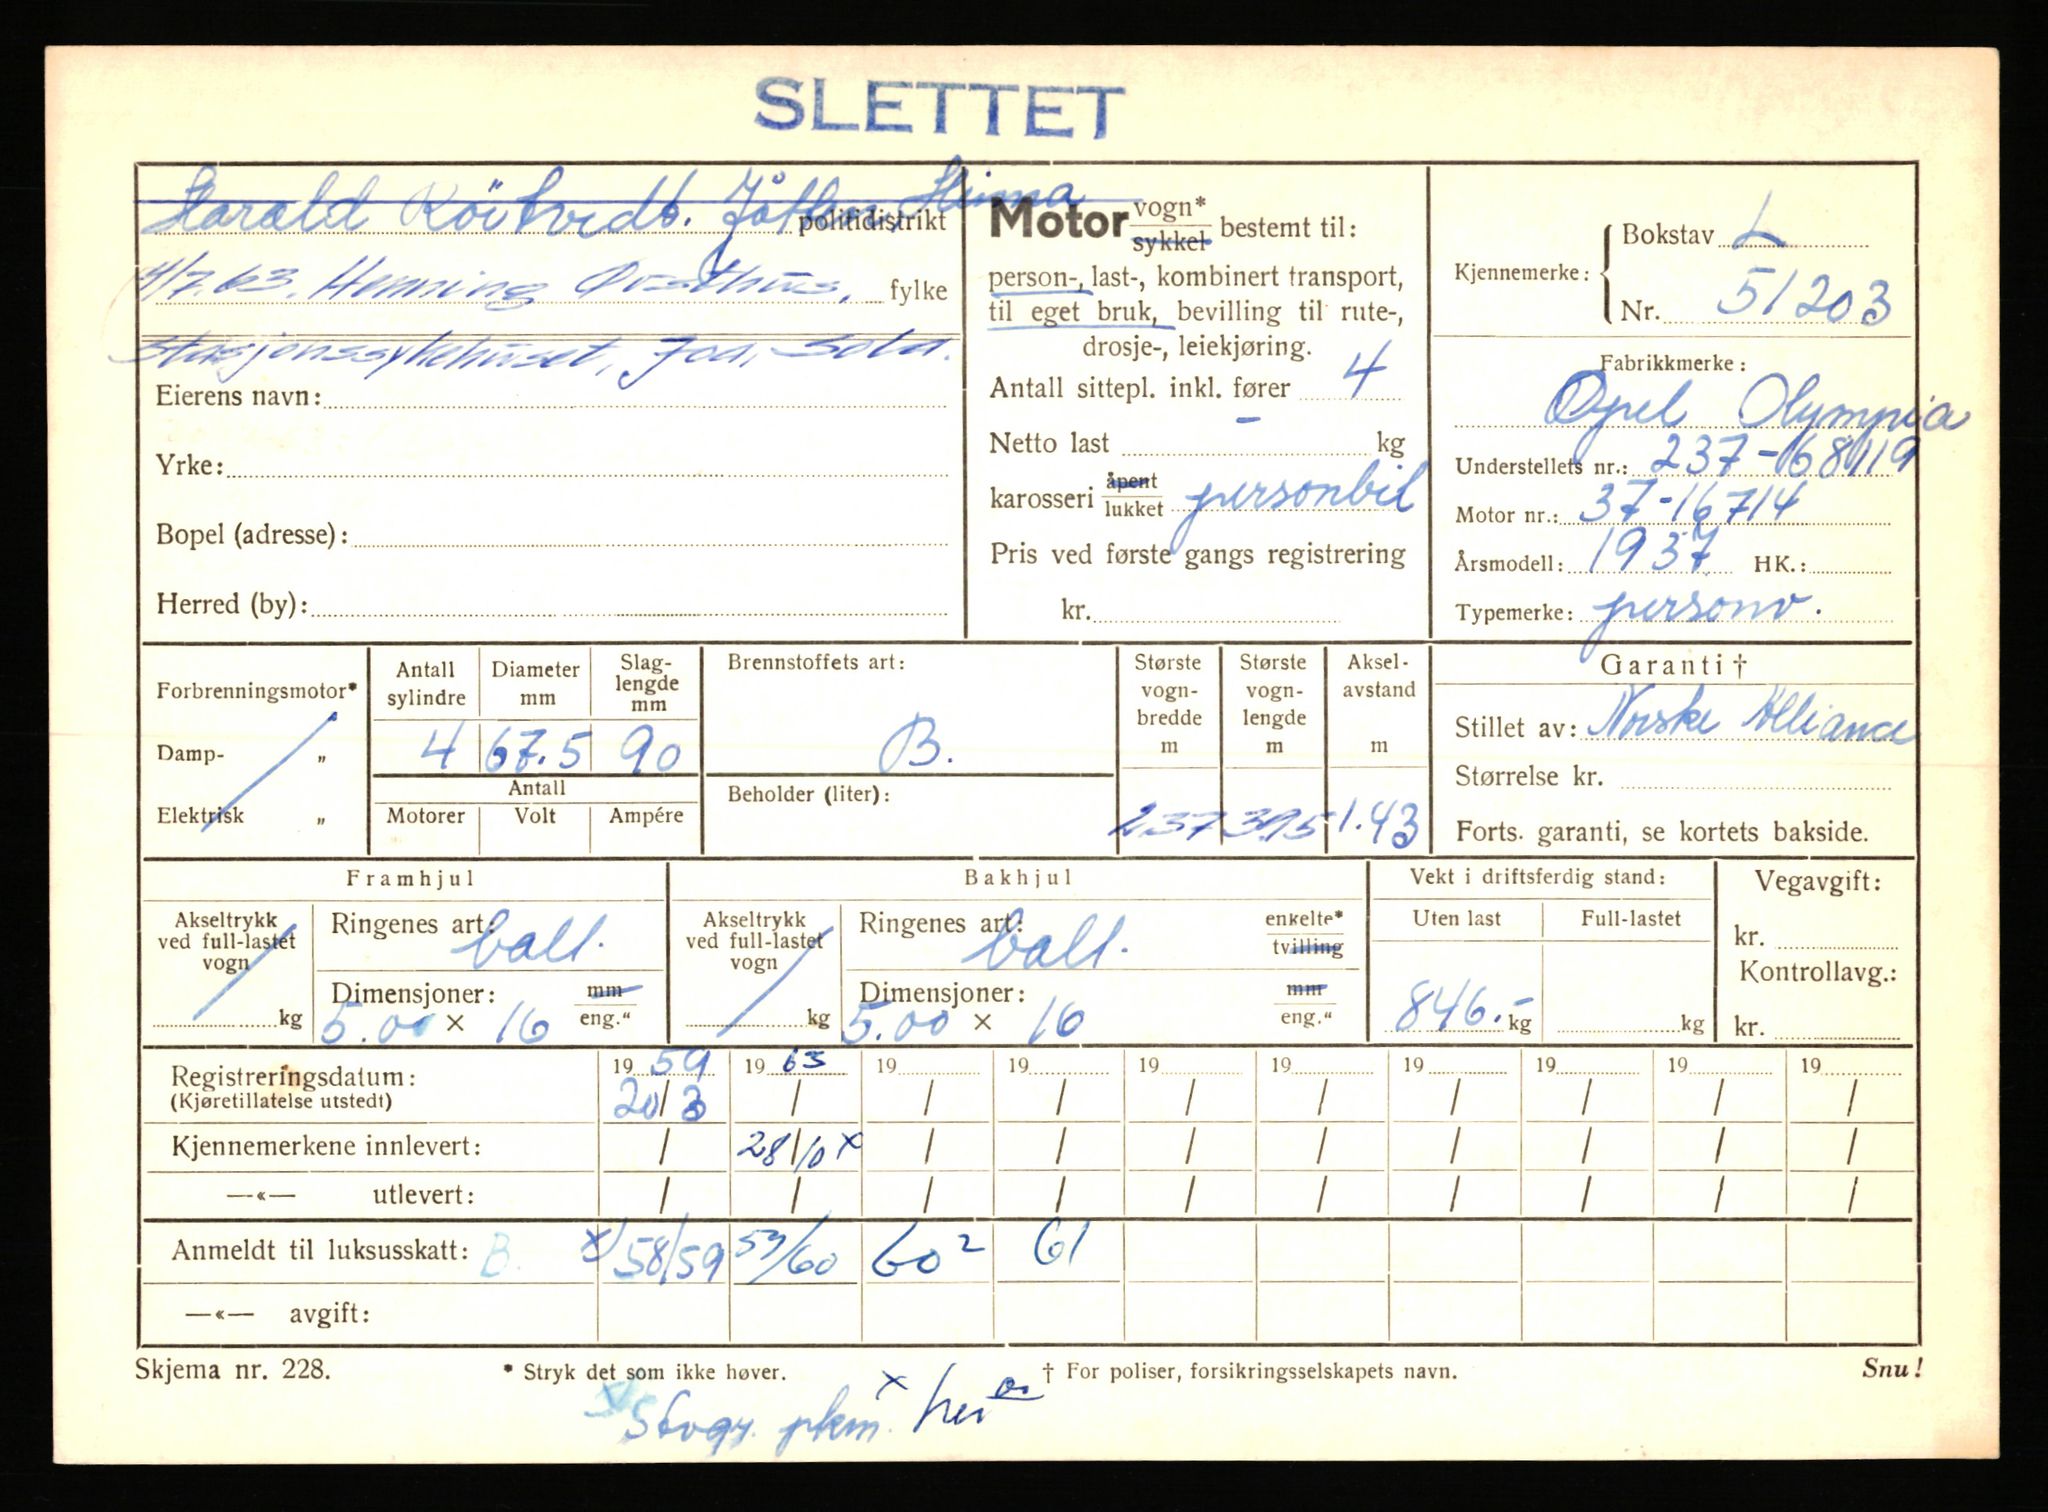 SLETTET
Harald Röitvedt. Jåtten, Hinna
politidistrikt
4/7.63. Henning Østhus.
fylke
Stasjonssykehuset, Joa, Sola.
Eierens navn:
Yrke:
Bopel (adresse):
Herred (by):
Motor vogn* sykkel bestemt til:
person-, last-, kombinert transport,
til eget bruk, bevilling til rute-,
drosje-, leiekjøring.
Antall sittepl. inkl. fører 4
Netto last - kg
karosseri åpent lukket personbil
Pris ved første gangs registrering
kr.
Kjennemerke: Bokstav L
Nr. 51203
Fabrikkmerke:
Opel Olympia
Understellets nr.: 237-68119
Motor nr.: 37-16714
Årsmodell: 1937 HK.:
Typemerke: personv.
Forbrenningsmotor*
Damp- „
Elektrisk „
Antall sylindre Diameter mm Slag- lengde mm
4 67.5 90
Antall
Motorer Volt Ampére
Brennstoffets art:
B.
Beholder (liter):
Største vogn- bredde m Største vogn- lengde m Aksel- avstand m
237 395 1.43
Garanti †
Stillet av: Norske Alliance
Størrelse kr.
Forts. garanti, se kortets bakside.
Framhjul
Akseltrykk ved full-lastet vogn kg
Ringenes art: ball.
Dimensjoner: mm eng."
5.00 × 16
Bakhjul
Akseltrykk ved full-lastet vogn kg
Ringenes art: ball. enkelte* tvilling
Dimensjoner: mm eng."
5.00 × 16
Vekt i driftsferdig stand:
Uten last Full-lastet
846.- kg kg
Vegavgift:
kr.
Kontrollavg.:
kr.
Registreringsdatum: 1959 1963 19 19 19 19 19 19 19 19
(Kjøretillatelse utstedt) 20/3 / / / / / / / / /
Kjennemerkene innlevert: / 28/10 x / / / / / / / /
—«— utlevert: / / / / / / / / / /
Anmeldt til luksusskatt: B. x/58/59 59/60 60² 61
—«— avgift:
Skjema nr. 228. * Stryk det som ikke høver. † For poliser, forsikringsselskapets navn. Snu!
pkm. x her